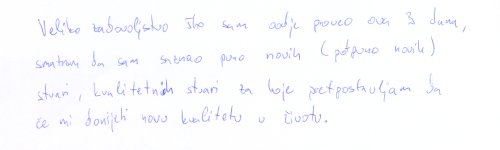 Veliko zadovoljstvo što sam ovdje proveo ova 3 dana,
smatram da sam saznao puno novih (potpuno novih)
stvari, kvalitetnih stvari za koje pretpostavljam da
će mi donijeti novu kvalitetu u životu.